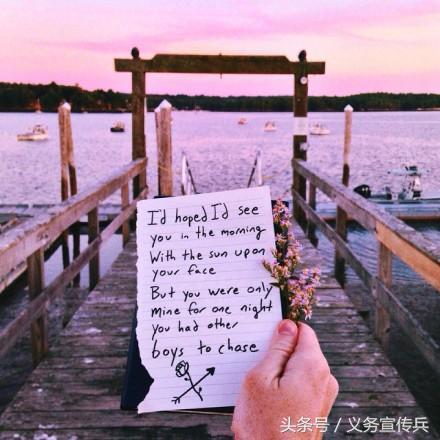 I'd hoped I'd see
you in the morning
With the sun upon
your face
But you were only
mine for one night
you had other
boys to chase
头条号 / 义务宣传兵